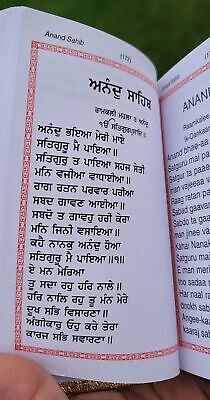 Anand Sahib
(179)
ਅਨੰਦੁ ਸਾਹਿਬ
ਰਾਮਕਲੀ ਮਹਲਾ ੩ ਅਨੰਦੁ
ੴ ਸਤਿਗੁਰ ਪ੍ਰਸਾਦਿ॥
ਅਨੰਦੁ ਭਇਆ ਮੇਰੀ ਮਾਏ
ਸਤਿਗੁਰੂ ਮੈ ਪਾਇਆ॥
ਸਤਿਗੁਰੁ ਤ ਪਾਇਆ ਸਹਜ ਸੇਤੀ
ਮਨਿ ਵਜੀਆ ਵਾਧਾਈਆ॥
ਰਾਗ ਰਤਨ ਪਰਵਾਰ ਪਰੀਆ
ਸਬਦ ਗਾਵਣ ਆਈਆ॥
ਸਬਦੋ ਤ ਗਾਵਹੁ ਹਰੀ ਕੇਰਾ
ਮਨਿ ਜਿਨੀ ਵਸਾਇਆ॥
ਕਹੈ ਨਾਨਕੁ ਅਨੰਦੁ ਹੋਆ
ਸਤਿਗੁਰੂ ਮੈ ਪਾਇਆ॥੧॥
ਏ ਮਨ ਮੇਰਿਆ
ਤੂ ਸਦਾ ਰਹੁ ਹਰਿ ਨਾਲੇ॥
ਹਰਿ ਨਾਲਿ ਰਹੁ ਤੂ ਮੰਨ ਮੇਰੇ
ਦੂਖ ਸਭਿ ਵਿਸਾਰਣਾ॥
ਅੰਗੀਕਾਰੁ ਓਹੁ ਕਰੇ ਤੇਰਾ
ਕਾਰਜ ਸਭਿ ਸਵਾਰਣਾ॥
Anand Sahib
(179)
ANAND
Raamkalee
Ik-Oankaar
Anand bhae-aa
Satgur ta paa
Raag ratan
Sabad gaavan
Sabdo ta gaav
Kahai Nanak
Satguru mai
Ai man mai
Too sadaa
Har naal rahu
Angee-kaa